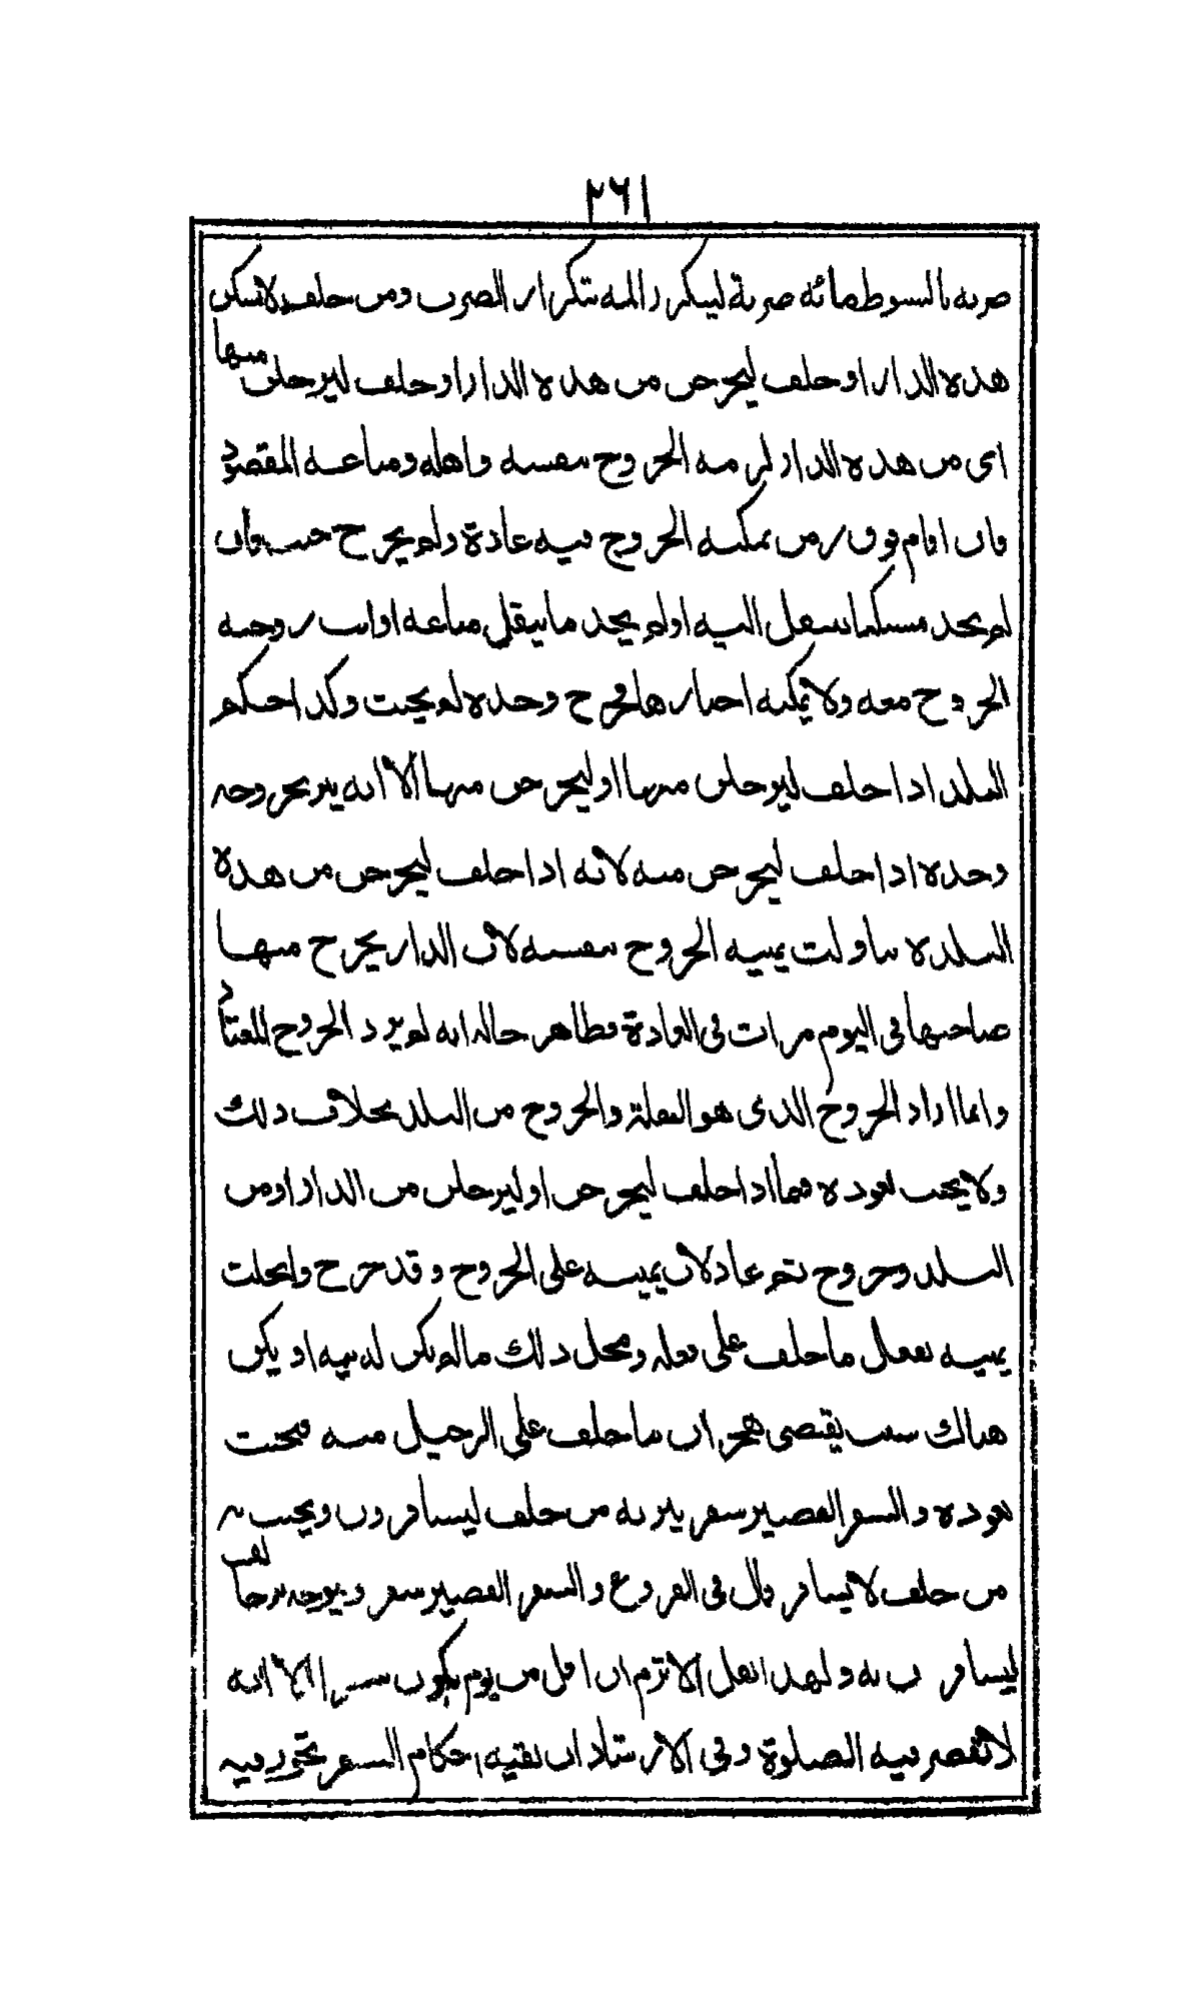 ٢٦١
ضربه بالسوط مائة ضربة ليتكرر المه بتكرار الضرب ومن حلف لا يسكن
هذه الدار او حلف ليخرجن من هذه الدار او حلف ليرحلن منها
اى من هذه الدار لزمه الخروج بنفسه واهله ومتاعه المقصود
فان اقام فوق زمن يمكنه الخروج فيه عادة ولم يخرج حنث فان
لم يجد مسكنا ينتقل اليه او لم يجد ما ينقل متاعه او ابت زوجته
الخروج معه ولا يمكنه اجبارها فخرج وحده لم يحنث وكذا حكم
البلد اذا حلف ليرحلن منها او ليخرجن منها الا انه يبر بخروجه
وحده اذا حلف ليخرجن منه لانه اذا حلف ليخرجن من هذه
البلدة تناولت يمينه الخروج بنفسه لان الدار يخرج منها
صاحبها فى اليوم مرات فى العادة فظاهر حاله انه لم يرد الخروج المعتاد
وانما اراد الخروج الذى هو النقلة والخروج من البلد بخلاف ذلك
ولا يحنث بعوده فيما اذا حلف ليخرجن او ليرحلن من الدار او من
البلد وخروج ثم عاد لان يمينه على الخروج وقد خرج وانحلت
يمينه بفعل ما حلف على فعله ومحل ذلك ما لم يكن له نية او يكن
هناك سبب يقتضى هجران ما حلف على الرحيل منه فيحنث
بعوده والسفر القصير سفر يبر به من حلف ليسافرن ويحنث به
من حلف لا يسافر قال فى الفروع والسفر القصير سفر ويتوجه بر حالف
ليسافرن به ولهذا نقل الاثرم ان اقل من يوم يكون سفرا الا انه
لا تقصر فيه الصلوة وفى الارشاد ان بقية احكام السفر تجوز فيه